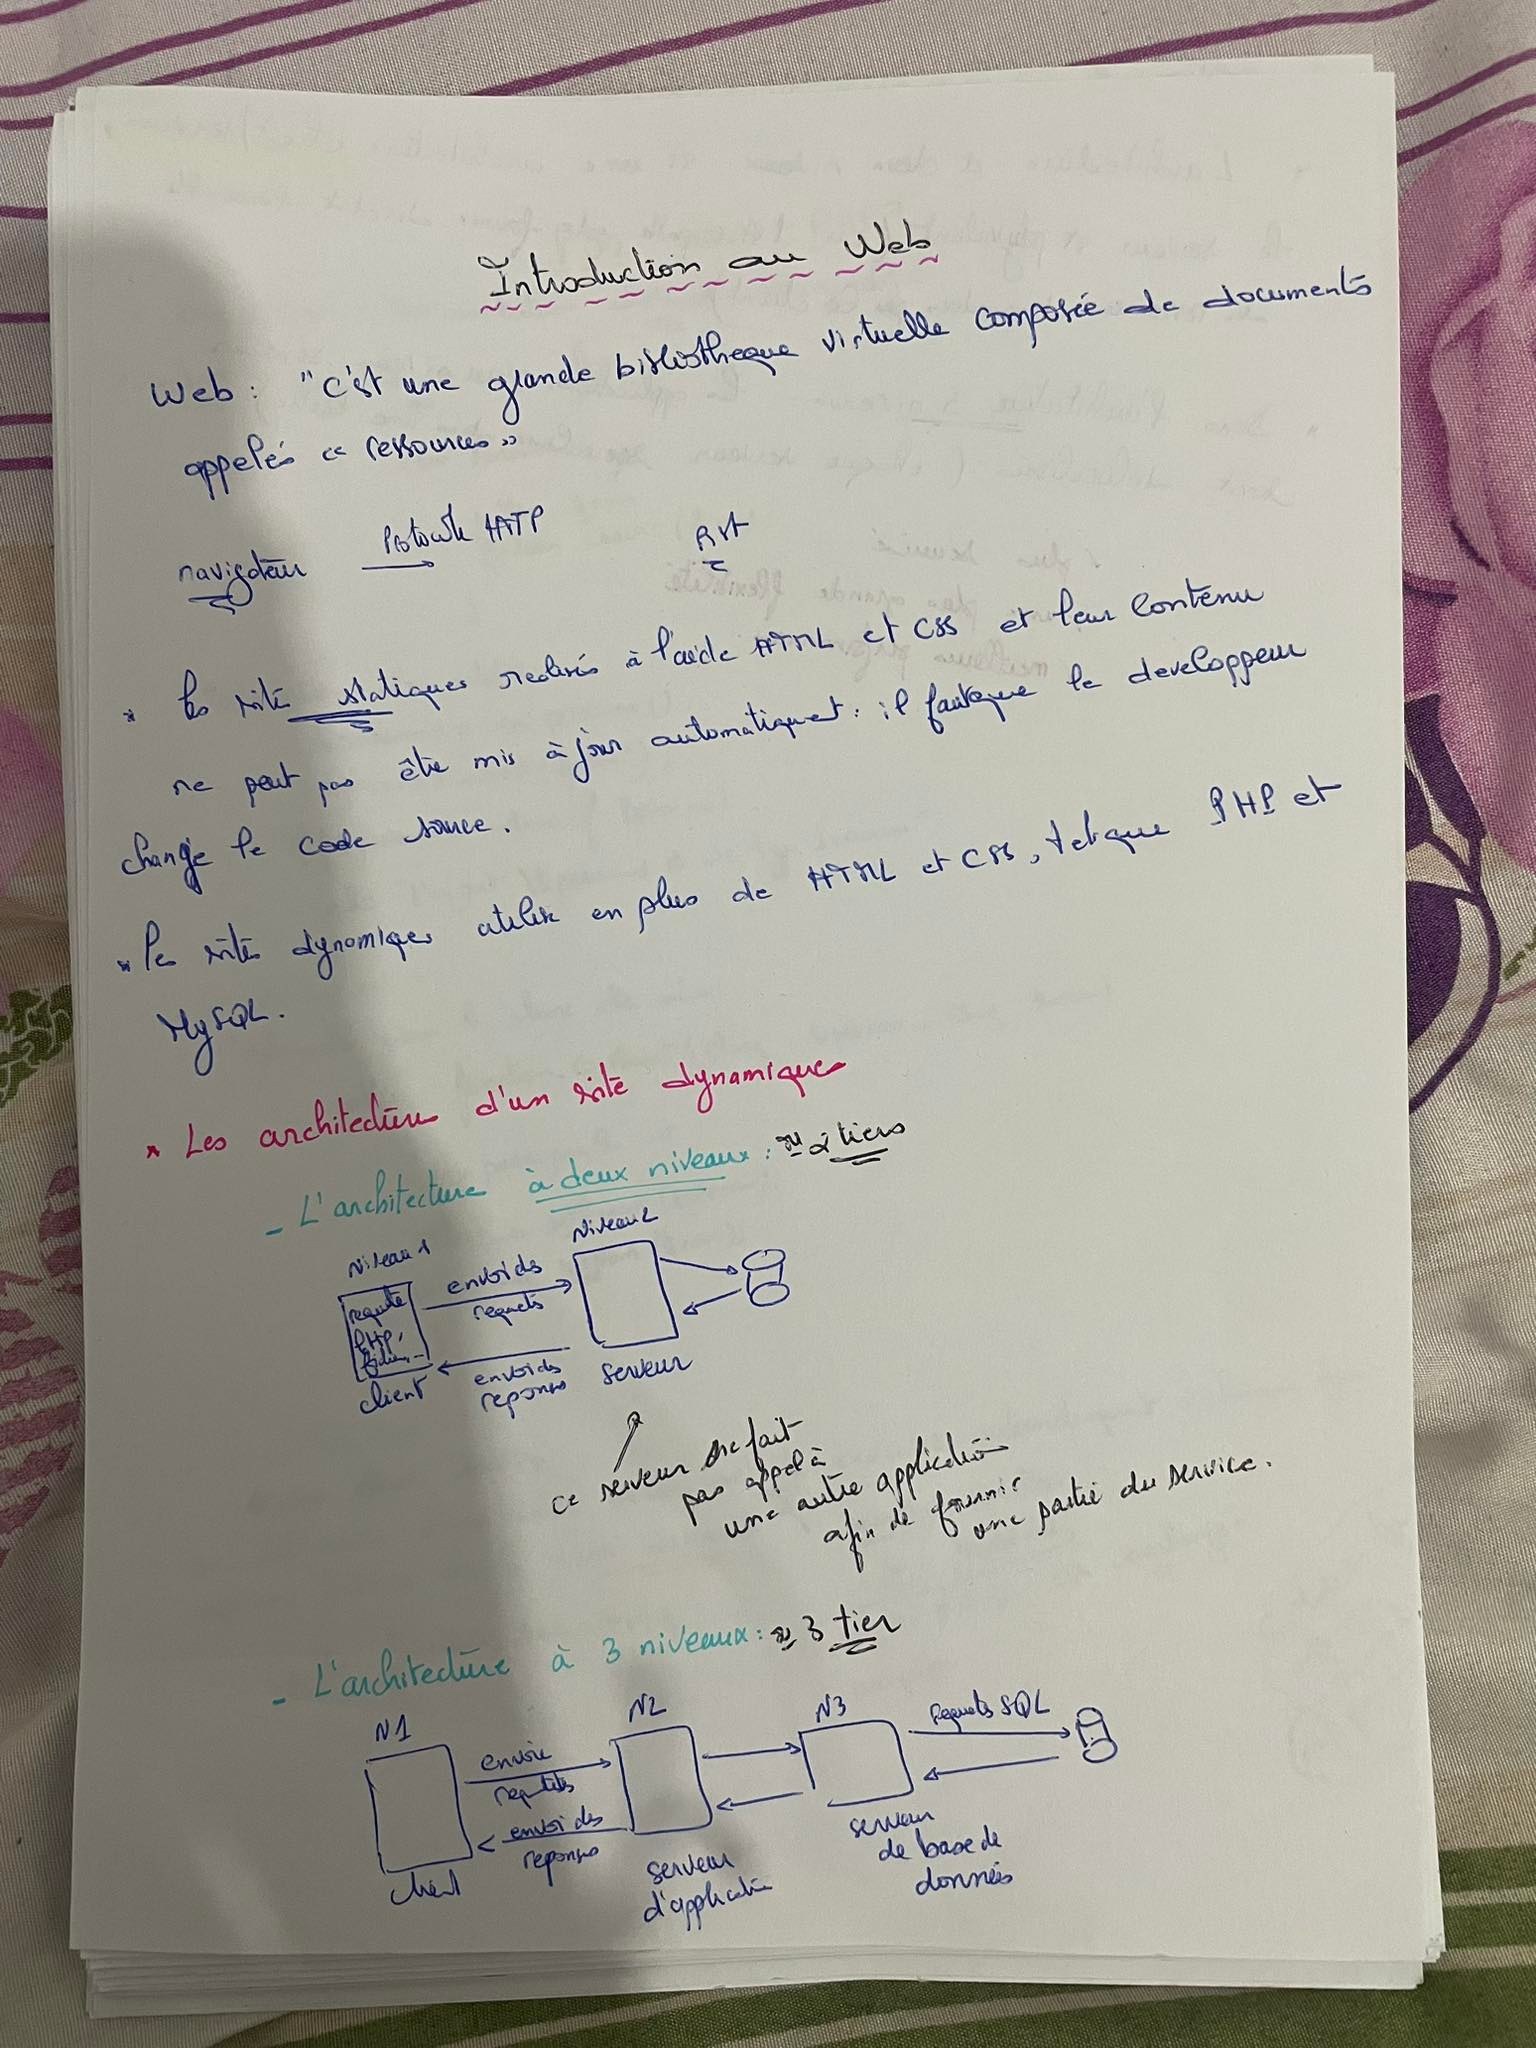 Introduction au Web
Web : "C'est une grande bibliotheque virtuelle composée de documents
appelés « ressources »
navigateur Protocole HTTP
* les sites statiques realisés à l'aide HTML et CSS et leur contenu
ne peut pas être mis à jour automatiquet : il faut que le developpeur
change le code source.
* les sites dynamiques utilise en plus de HTML et CSS, tel que PHP et
MySQL.
* Les architectures d'un site dynamique
- L'architecture à deux niveaux : 2 tiers
Niveau 1 Niveau 2
requête
PHP,
envoi des
requets
client
envoi des
reponses
serveur
ce serveur ne fait
pas appel à
une autre application
afin de fournir
une partie du service.
- L'architecture à 3 niveaux : 3 tier
N1 N2 N3 Requets SQL
envoie
requetes
envoi des
reponses
client
serveur
d'application
serveur
de base de
données